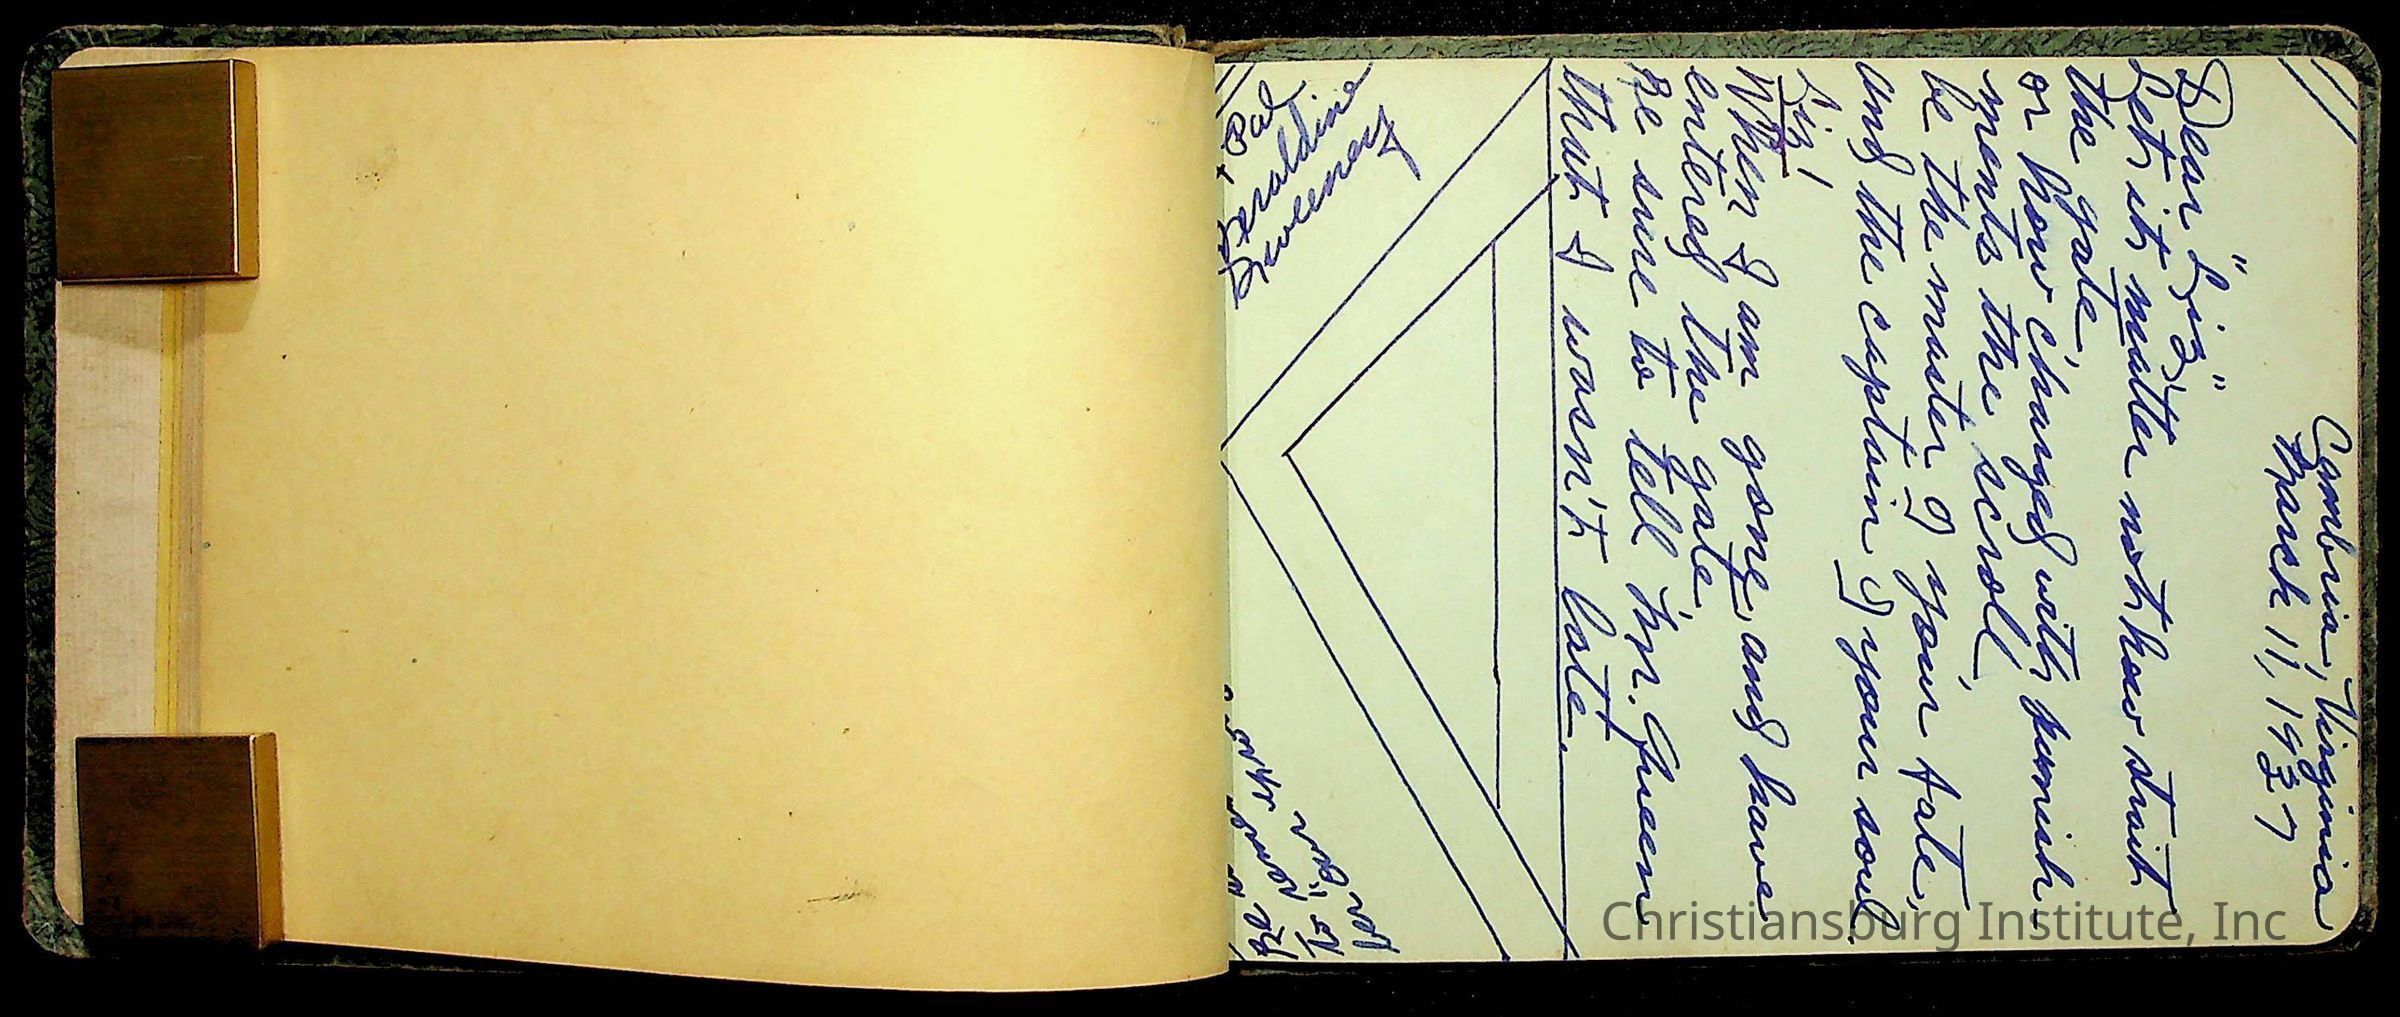 Cambria, Virginia
March 11, 1937
Dear "Liz",
Let it matter not how strait
the gate
or how charged with punish-
ments the scroll,
be the master of your fate,
and the captain of your soul.
Liz,
When I am gone, and have
entered the gate
Be sure to tell Mr. Green
that I wasn't late.
Pal
Geraldine
Sweeney
Christiansburg Institute, Inc